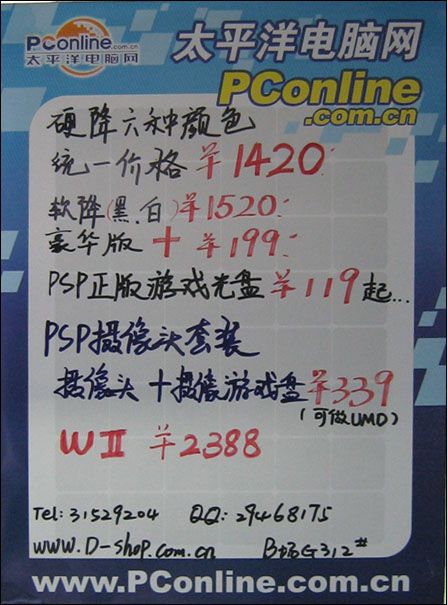 PConline.com.cn
太平洋电脑网
太平洋电脑网
PConline
.com.cn
硬降六种颜色
统一价格 ¥1420
软降(黑.白)¥1520
豪华版 + ¥199
PSP正版游戏光盘 ¥119起...
PSP摄像头套装
摄像头+摄像游戏盘¥339
(可做UMD)
WII ¥2388
Tel: 31529204 QQ: 29468175
www.D-shop.com.cn B场G312#
www.PConline.com.cn